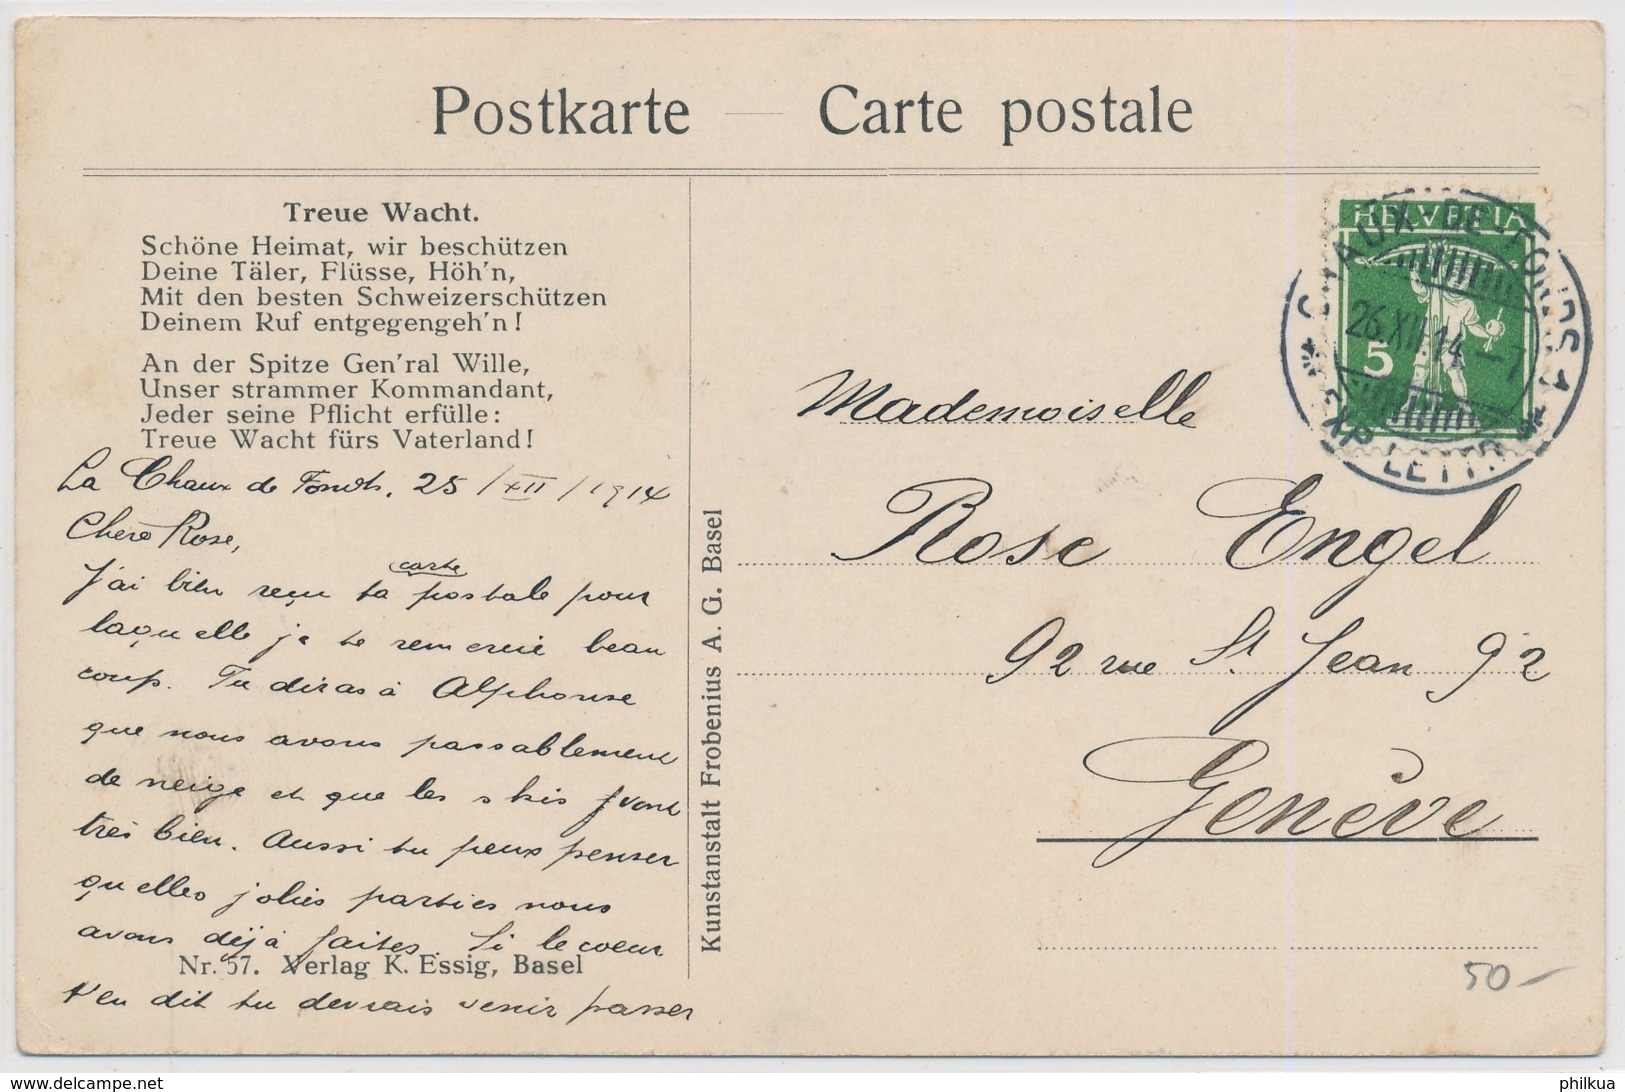 Postkarte — Carte postale
Treue Wacht.
Schöne Heimat, wir beschützen
Deine Täler, Flüsse, Höh'n,
Mit den besten Schweizerschützen
Deinem Ruf entgegengeh'n!
An der Spitze Gen'ral Wille,
Unser strammer Kommandant,
Jeder seine Pflicht erfülle:
Treue Wacht fürs Vaterland!
La Chaux de Fonds, 25/XII/1914
Chère Rose,
J'ai bien reçu ta carte postale pour
laquelle je te remercie beau
coup. Tu diras à Alphonse
que nous avons passablement
de neige et que les skis vont
très bien. Aussi tu peux penser
quelles jolies parties nous
avons déjà faites. Si le coeur
Nr. 57. Verlag K. Essig, Basel
t'en dit tu devrais venir passer
Kunstanstalt Frobenius A. G. Basel
HELVETIA
5
CHAUX-DE-FONDS 1
26.XII.14.-7
EXP. LETTR.
Mademoiselle
Rose Engel
92 rue St Jean 92
Genève
50-
www.delcampe.net
philkua